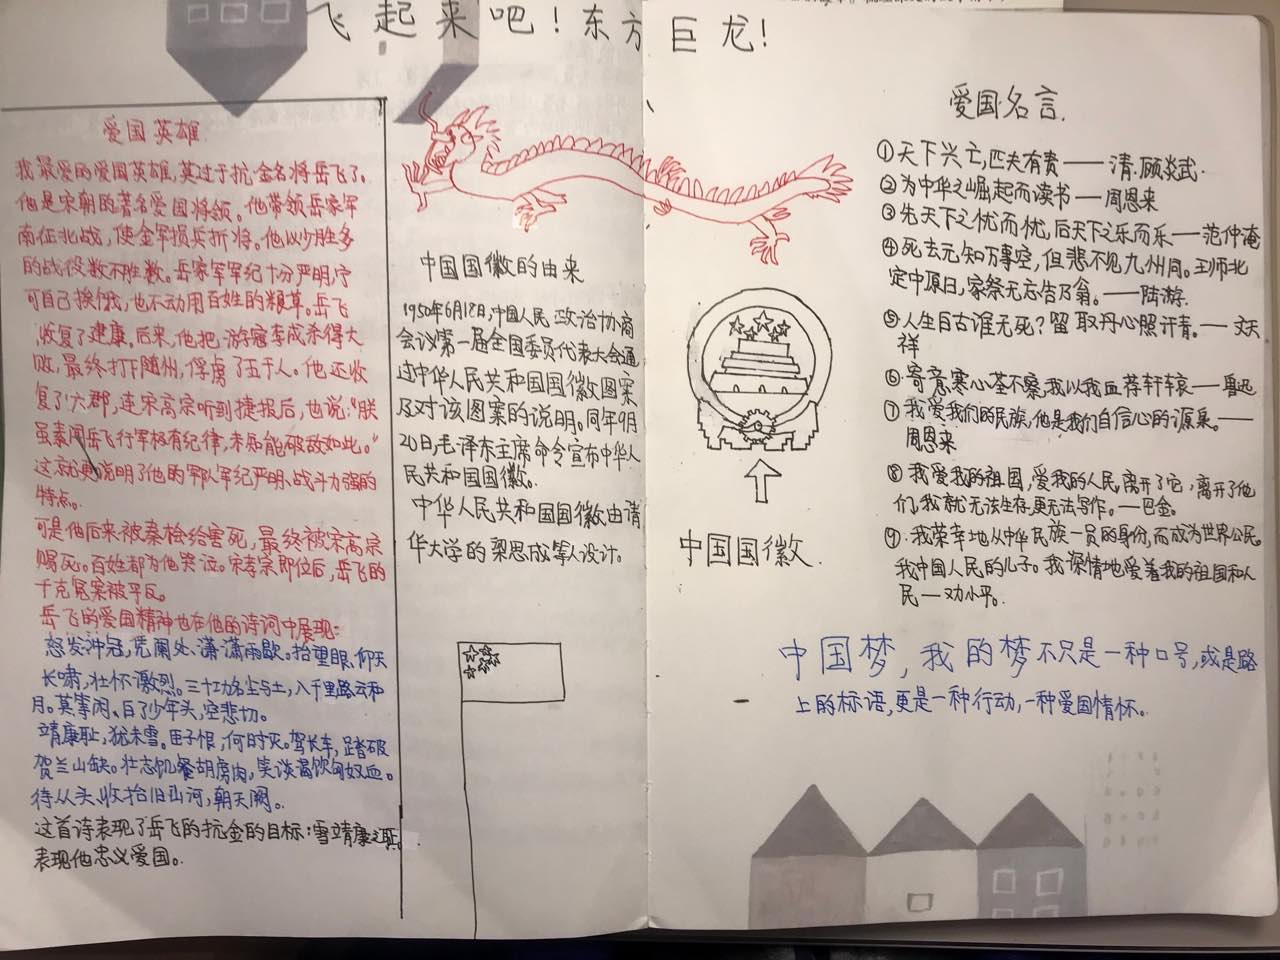 飞起来吧！东方巨龙！
爱国英雄
我最爱的爱国英雄，莫过于抗金名将岳飞了。
他是宋朝的著名爱国将领。他带领岳家军
南征北战，使金军损兵折将。他以少胜多
的战役数不胜数。岳家军军纪十分严明，宁
可自己挨饿，也不动用百姓的粮草。岳飞
收复了建康。后来，他把游寇李成杀得大
败，最终打下随州，俘虏了五千人。他还收
复了六郡，连宋高宗听到捷报后，也说："朕
虽素闻岳飞行军极有纪律，未知能破敌如此。"
这就更说明了他的军队军纪严明、战斗力强的
特点。
可是他后来被秦桧给害死，最终被宋高宗
赐死。百姓都为他哭泣。宋孝宗即位后，岳飞的
千克冤案被平反。
岳飞的爱国精神也在他的诗词中展现：
怒发冲冠，凭阑处、潇潇雨歇。抬望眼、仰天
长啸，壮怀激烈。三十功名尘与土，八千里路云和
月。莫等闲、白了少年头，空悲切。
靖康耻，犹未雪。臣子恨，何时灭。驾长车，踏破
贺兰山缺。壮志饥餐胡虏肉，笑谈渴饮匈奴血。
待从头、收拾旧山河，朝天阙。
这首诗表现了岳飞的抗金的目标：雪靖康之耻。
表现他忠义爱国。
中国国徽的由来
1950年6月18日，中国人民政治协商
会议第一届全国委员代表大会通
过中华人民共和国国徽图案
及对该图案的说明。同年9月
20日，毛泽东主席命令宣布中华人
民共和国国徽。
中华人民共和国国徽由清
华大学的梁思成等人设计。
中国国徽
爱国名言.
①天下兴亡，匹夫有责——清.顾炎武.
②为中华之崛起而读书——周恩来
③先天下之忧而忧，后天下之乐而乐——范仲淹
④死去元知万事空，但悲不见九州同。王师北
定中原日，家祭无忘告乃翁。——陆游.
⑤人生自古谁无死？留取丹心照汗青。——文天
祥
⑥寄意寒心荃不察，我以我血荐轩辕——鲁迅
⑦我爱我们的民族，他是我们自信心的源泉。——
周恩来
⑧我爱我的祖国，爱我的人民，离开了它，离开了他
们，我就无法生存，更无法写作。——巴金。
⑨我荣幸地从中华民族一员的身份，而成为世界公民。
我中国人民的儿子。我深情地爱着我的祖国和人
民——邓小平。
中国梦，我的梦不只是一种口号，或是路
上的标语，更是一种行动，一种爱国情怀。